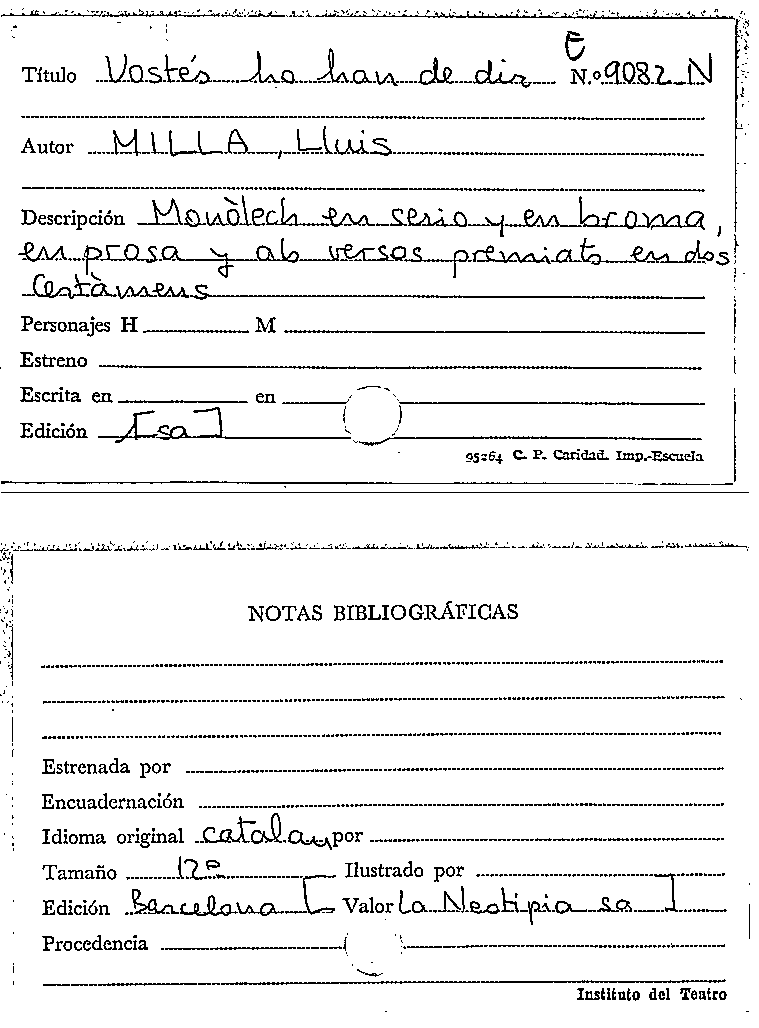 E
Título Vostés ho han de dir N.º 9082 N
Autor MILLA, Lluis
Descripción Monòlech en serio y en broma,
en prosa y ab versos premiats en dos
Certàmens
Personajes H M
Estreno
Escrita en en
Edición [sa]
95264 C. P. Caridad. Imp.-Escuela
NOTAS BIBLIOGRÁFICAS
Estrenada por
Encuadernación
Idioma original catalan por
Tamaño 12º Ilustrado por
Edición Barcelona [ Valor La Neotipia sa ]
Procedencia
Instituto del Teatro